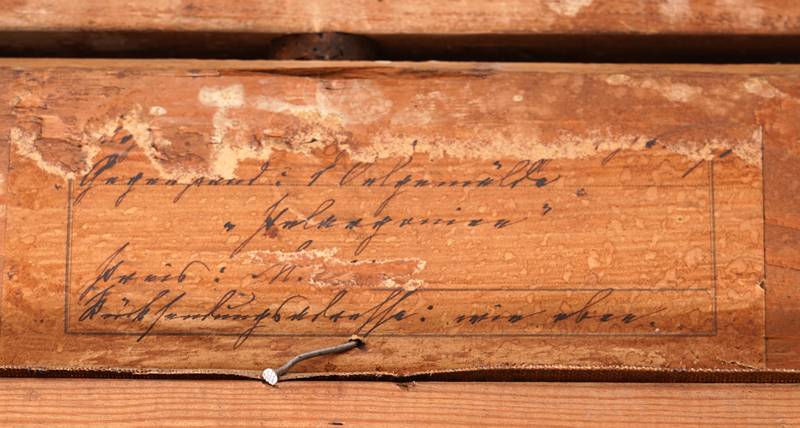 Gegenstand: 1 Oelgemälde
„Pelargonien"
Preis: M.
Rücksendungsadresse: wie oben.